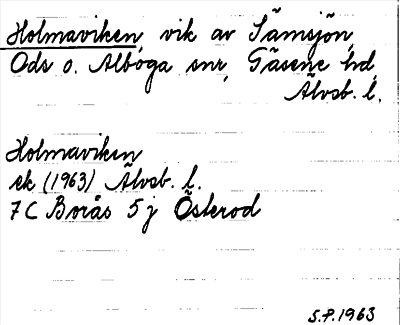 Holmaviken, vik av Sämsjön,
Ods o. Alboga snr, Gäsene hd,
Älvsb. l.
Holmaviken
ek (1963) Älvsb. l.
7C Borås 5j Österod
S.P. 1963